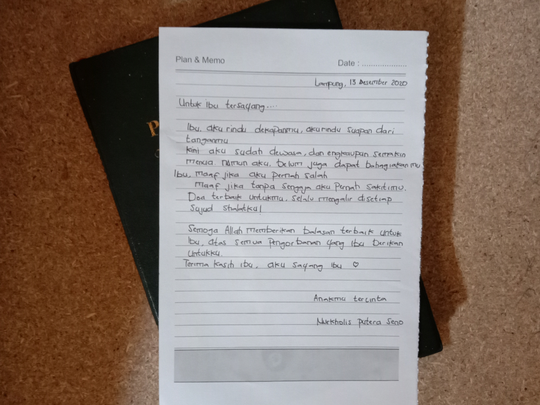 Plan & Memo
Date : ......................
Lampung, 13 Desember 2020
Untuk Ibu tersayang....
Ibu, aku rindu dekapanmu, aku rindu suapan dari
tanganmu
Kini aku sudah dewasa, dan engkaupun semakin
menua namun aku belum juga dapat bahagiakanmu
Ibu, maaf jika aku pernah salah
maaf jika tanpa sengaja aku pernah sakitimu.
Doa terbaik untukmu, selalu mengalir disetiap
sujud shalatku!
Semoga Allah memberikan balasan terbaik untuk
Ibu, atas semua pengorbanan yang ibu berikan
untukku.
Terima kasih ibu, aku sayang ibu ♡
Anakmu tercinta
Nurkholis Putera Seno
P